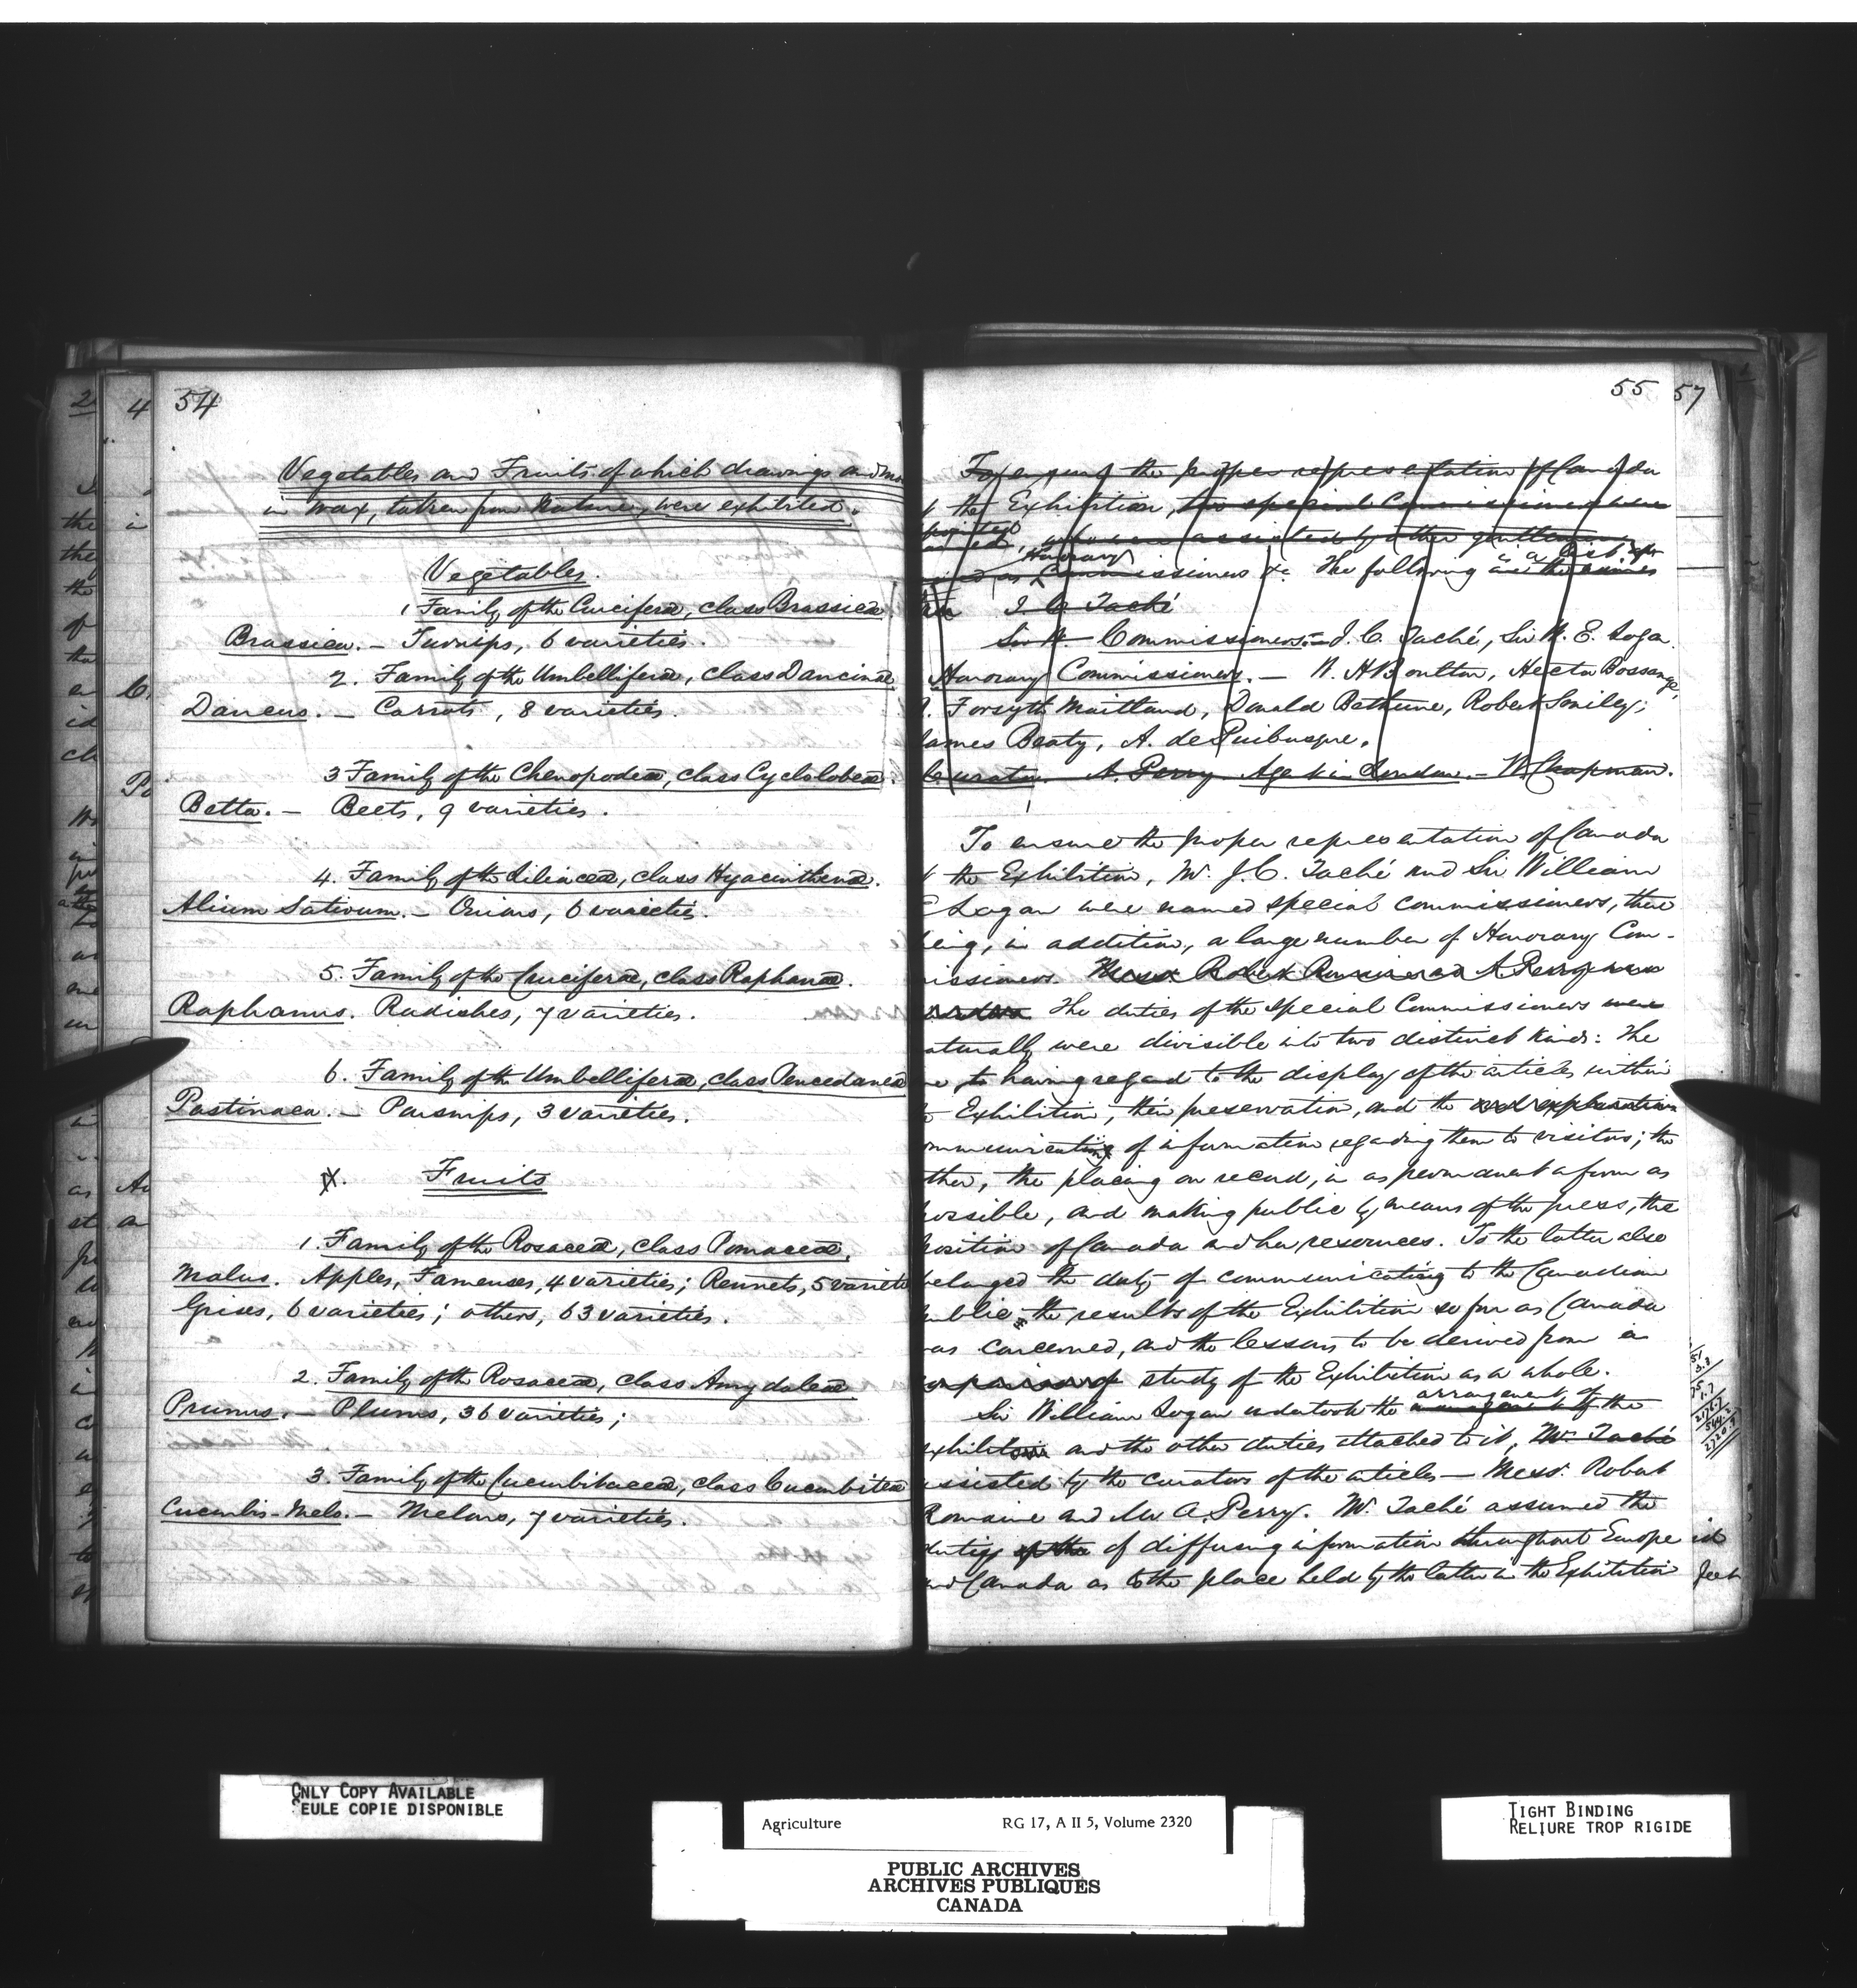 54
Vegetables and Fruits of which drawings and mo
in wax, taken from Nature, were exhibited.
Vegetables.
1 Family of the Cruciferæ, class Brassicæ
Brassica. – Turnips, 6 varieties.
2. Family of the Umbelliferæ, class Daucinæ
Daucus. – Carrots, 8 varieties.
3 Family of the Chenopodeæ, class Cyclolobeæ
Betta. – Beets, 9 varieties.
4. Family of the Liliaceæ, class Hyacinthenæ.
Alium Sativum. – Onions, 6 varieties.
5. Family of the Cruciferæ, class Raphaneæ.
Raphanus. Radishes, 7 varieties.
6. Family of the Umbelliferæ, class Peucedaneæ
Pastinaca. – Parsnips, 3 varieties.
Fruits
1. Family of the Rosaceæ, class Pomaceæ.
Malus. Apples, Fameuses, 4 varieties; Rennets, 5 variet
Grises, 6 varieties; others, 63 varieties.
2. Family of the Rosaceæ, class Amygdaleæ
Prunus. – Plums, 36 varieties;
3. Family of the Cucumbitaceæ, class Cucumbiteæ
Cucumbis-Melo. – Melons, 7 varieties.
55 57
To ensure the proper representation of Canada
t the Exhibition, two special Commissioners were
who were assisted by other gentlemen
Honorary
as Commissioners &c. The following are the names
J. C. Taché
Sir W. Commissioners: – J. C. Taché, Sir W. E. Loga
Honorary Commissioners. – W. H Boulton, Hector Bossange,
Forsyth Maitland, Donald Bethune, Robert Smiley;
James Beaty, A. de Puibusque.
Curator. A. Perry Agent in London. – W Chapman.
To ensure the proper representation of Canada
t the Exhibition, Mr. J. C. Taché and Sir William
E Logan were named special commissioners, there
being, in addition, a large number of Honorary Com-
missioners. Messrs. Robert Romaine and A Perry were
The duties of the special Commissioners were
naturally were divisible into two distinct kinds: The
one, to having regard to the display of the articles within
Exhibition, their preservation, and the and explanation
ommunicating of information regarding them to visitors; the
other, the placing on record, in as permanent a form as
possible, and making public by means of the press, the
position of Canada and her resources. To the latter also
belonged the duty of communicating to the Canadian
public the results of the Exhibition so far as Canada
was concerned, and the lessons to be derived from a
study of the Exhibition as a whole.
arrangement of
Sir William Logan undertook the the
exhibition and the other duties attached to it, Mr. Taché
assisted by the curators of the articles – Messr. Robert
Romaine and Mr. A. Perry. Mr. Taché assumed the
duties of the of diffusing information throughout Europe
and Canada as to the place held by the latter in the Exhibition
ONLY COPY AVAILABLE
SEULE COPIE DISPONIBLE
Agriculture RG 17, A II 5, Volume 2320
PUBLIC ARCHIVES
ARCHIVES PUBLIQUES
CANADA
TIGHT BINDING
RELIURE TROP RIGIDE